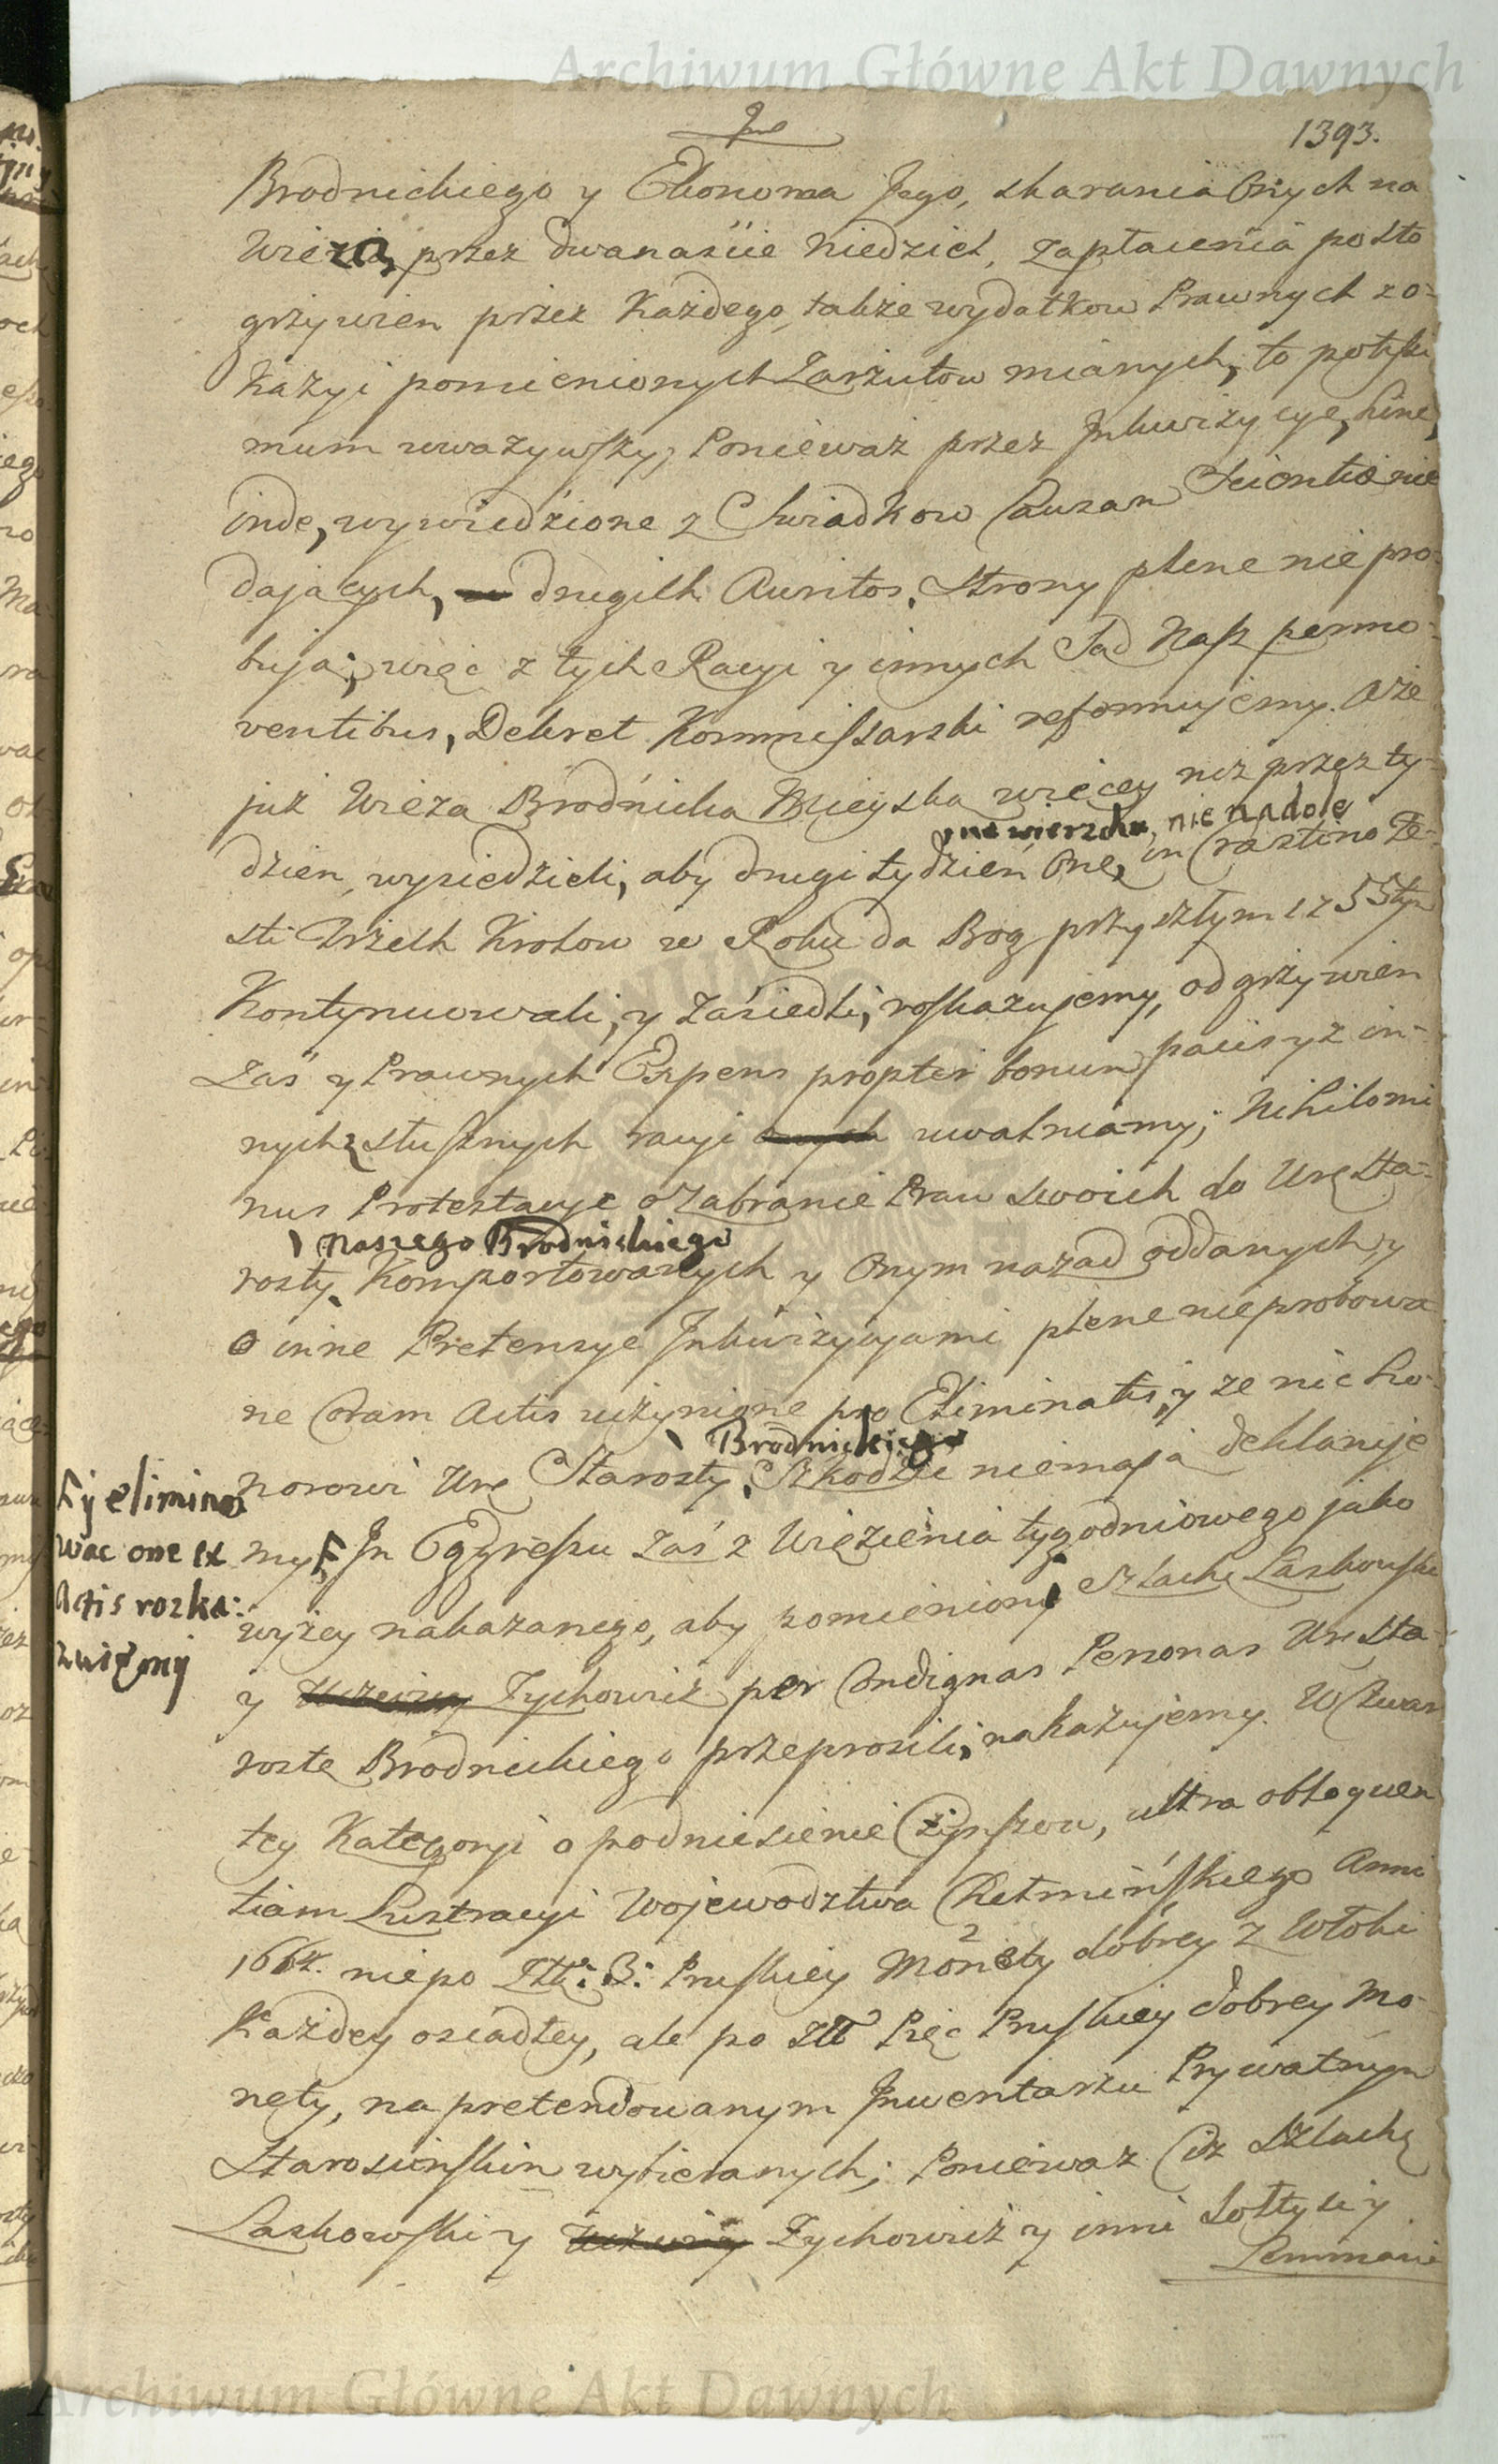 Archiwum Główne Akt Dawnych
1393.
Brodnickiego y Ekonoma Jego, skarania Onych na
Wieżą, przez dwanaście Niedziel, zapłacenia po sto
grzywien przez Każdego, także wydatkow Prawnych z o-
kazyi pomienionych Zarzutow mianych, to potissi
mum uważywszy, Ponieważ przez Inkwizycye, hinc,
inde, wywiedzione z Swiadkow Causam Scientiæ nie
dających, drugich Auritos, Strony plene nie pro-
bują; więc z tych Racyi y innych Sąd Nasz permo-
ventibus, Dekret Kommissarski reformujemy. A że
już Wieża Brodnicka Mieyską więcey niż przez ty-
na wierzchu, nie na dole
dzien, wysiedzieli, aby drugi tydzień One, in Crastino Fe-
sti Trzech Krolow w Roku da Bog przyszłym 1755tym
Kontynuowali, y zasiedli, roskazujemy, od grzywien
Zaś y Prawnych Expens propter bonum pacis y z in-
nych słusznych racyi uwalniamy; Nihilomi
nus Protestacye o Zabranie Praw swoich do Urę Sta-
naszego Brodnickiego
rosty Komportowanych y Onym nazad oddanych, y
o inne Pretensye Inkwizycyami plene nieprobowa
ne Coram Actis uczynione pro Eliminatis, y ze nic ho-
Brodnickiego
norowi Urę Starosty Szkodzić niemają deklaruje
my, In Egressu Zaś z Więzienia tygodniowego jako
F y elimino
wac one ex
Actis rozka:
zuiemy
wyżey nakazanego, aby pomieniony Szlach: Laskowski
y Zychowicz per Condignas Personas Ur: Sta-
rostę Brodnickiego przeprosili, nakazujemy. W Czwar
tey Kategoryi o podniesienie Czynszow, ultra obloquen
tiam Lustracyi Wojewodztwa Chełmińskiego Anni
1664. nie po Złł: 3: Pruskiey Monety dobrey z Włoki
Każdey osiadłey, ale po Złł Pięc Pruskiey dobrey Mo-
nety, na pretendowanym Inwentarzu Prywatnym
Starościńskim wybieranych; Ponieważ Ciż Szlach:
Laskowski y Zychowicz y inni Sołtysi y
Lemmani
Archiwum Główne Akt Dawnych